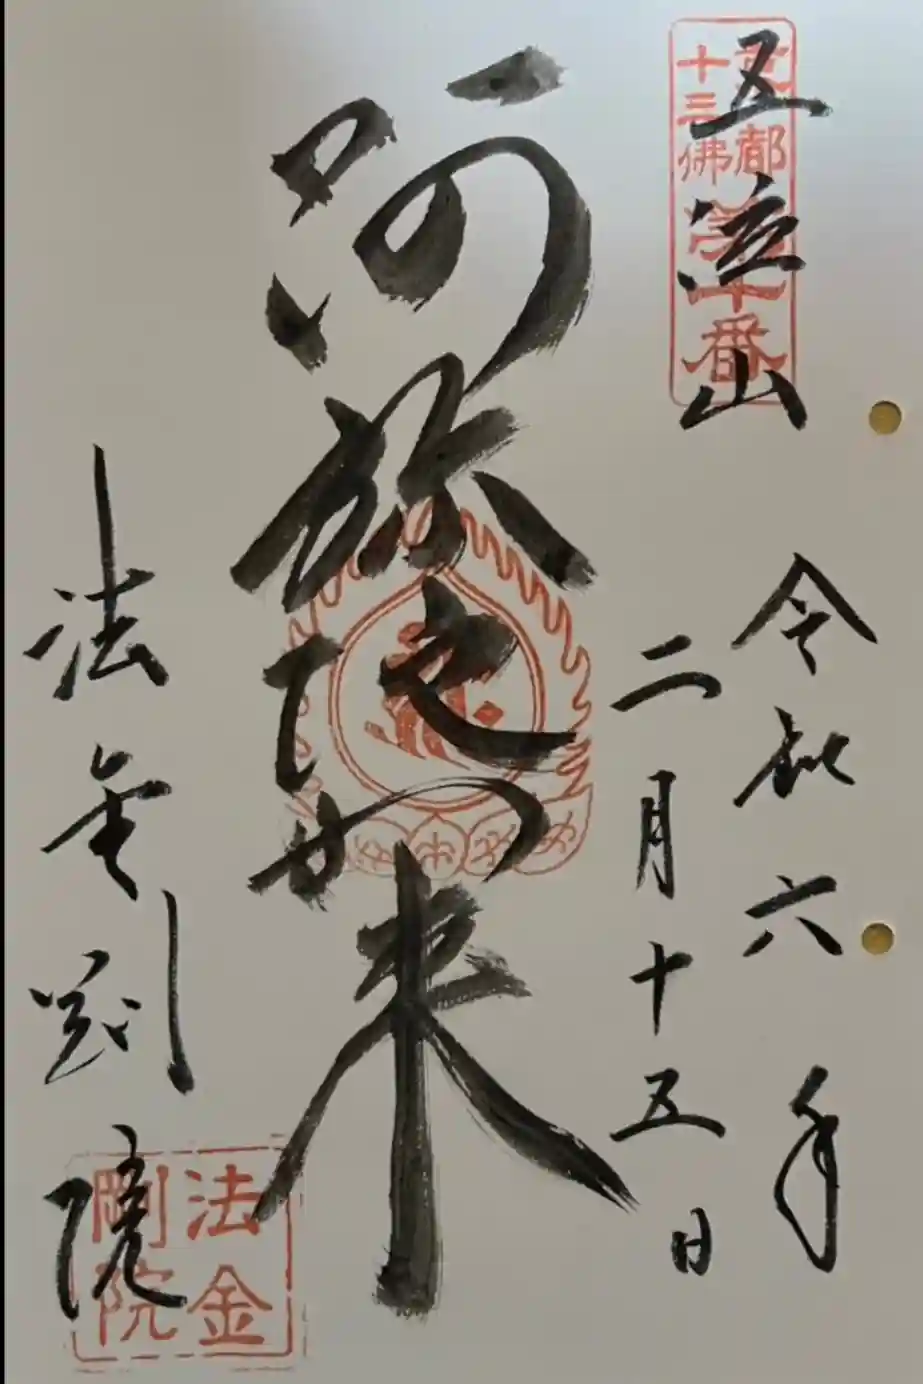 五位山
京都
十三佛
第十番
令和六年
二月十五日
阿弥陀如来
法金剛院
法金
剛院